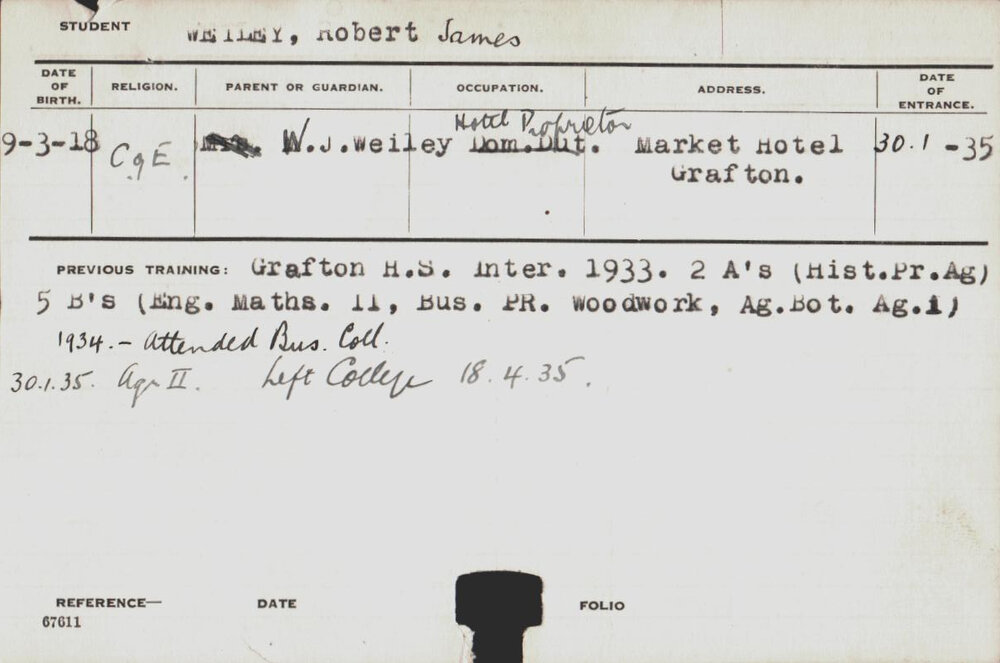 STUDENT WEILEY, Robert James
DATE OF BIRTH. RELIGION. PARENT OR GUARDIAN. OCCUPATION. ADDRESS. DATE OF ENTRANCE.
Hotel Proprietor
9-3-18 C of E. W.J.Weiley Dom.Dut. Market Hotel 30.1-35
Grafton.
PREVIOUS TRAINING: Grafton H.S. Inter. 1933. 2 A's (Hist.Pr.Ag)
5 B's (Eng. Maths. II, Bus. PR. Woodwork, Ag.Bot. Ag.i)
1934. - Attended Bus. Coll.
30.1.35. Agr II. Left College 18.4.35.
REFERENCE— DATE FOLIO
67611